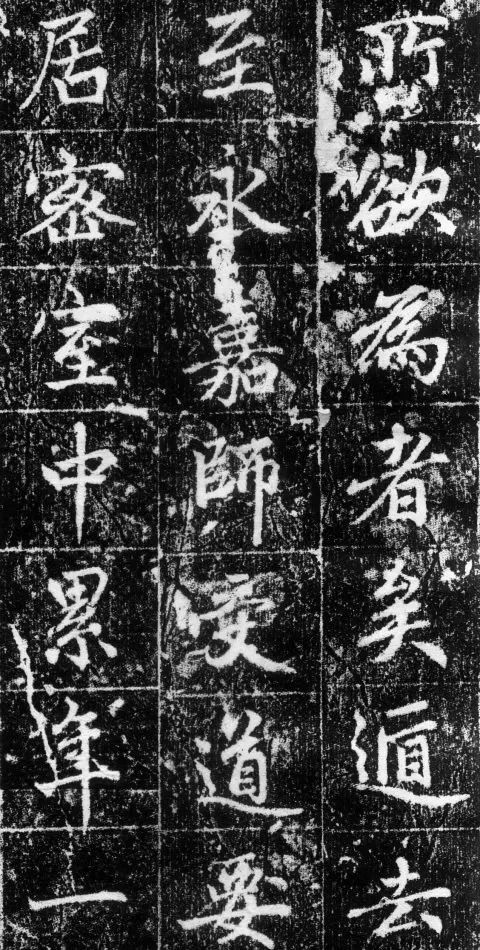 所欲為者矣遁去
至永嘉師受道要
居密室中累年一